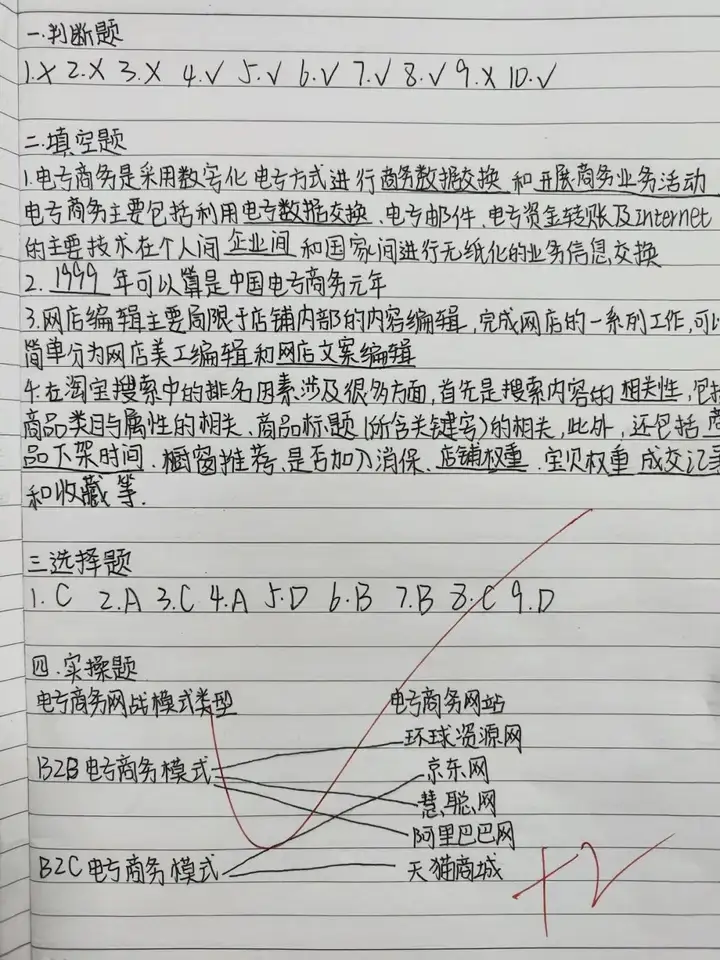 一.判断题
1.× 2.× 3.× 4.√ 5.√ 6.√ 7.√ 8.√ 9.× 10.√
二.填空题
1.电子商务是采用数字化电子方式进行商务数据交换和开展商务业务活动
电子商务主要包括利用电子数据交换、电子邮件、电子资金转账及Internet
的主要技术在个人间企业间和国家间进行无纸化的业务信息交换
2.1999年可以算是中国电子商务元年
3.网店编辑主要局限于店铺内部的内容编辑,完成网店的一系列工作,可以
简单分为网店美工编辑和网店文案编辑
4.在淘宝搜索中的排名因素涉及很多方面,首先是搜索内容的相关性,包括
商品类目与属性的相关、商品标题(所含关键字)的相关,此外,还包括商
品下架时间、橱窗推荐、是否加入消保、店铺权重、宝贝权重成交记录
和收藏等.
三选择题
1.C 2.A 3.C 4.A 5.D 6.B 7.B 8.C 9.D
四.实操题
电子商务网战模式类型 电子商务网站
环球资源网
B2B电子商务模式 京东网
慧聪网
阿里巴巴网
B2C电子商务模式 天猫商城
+2